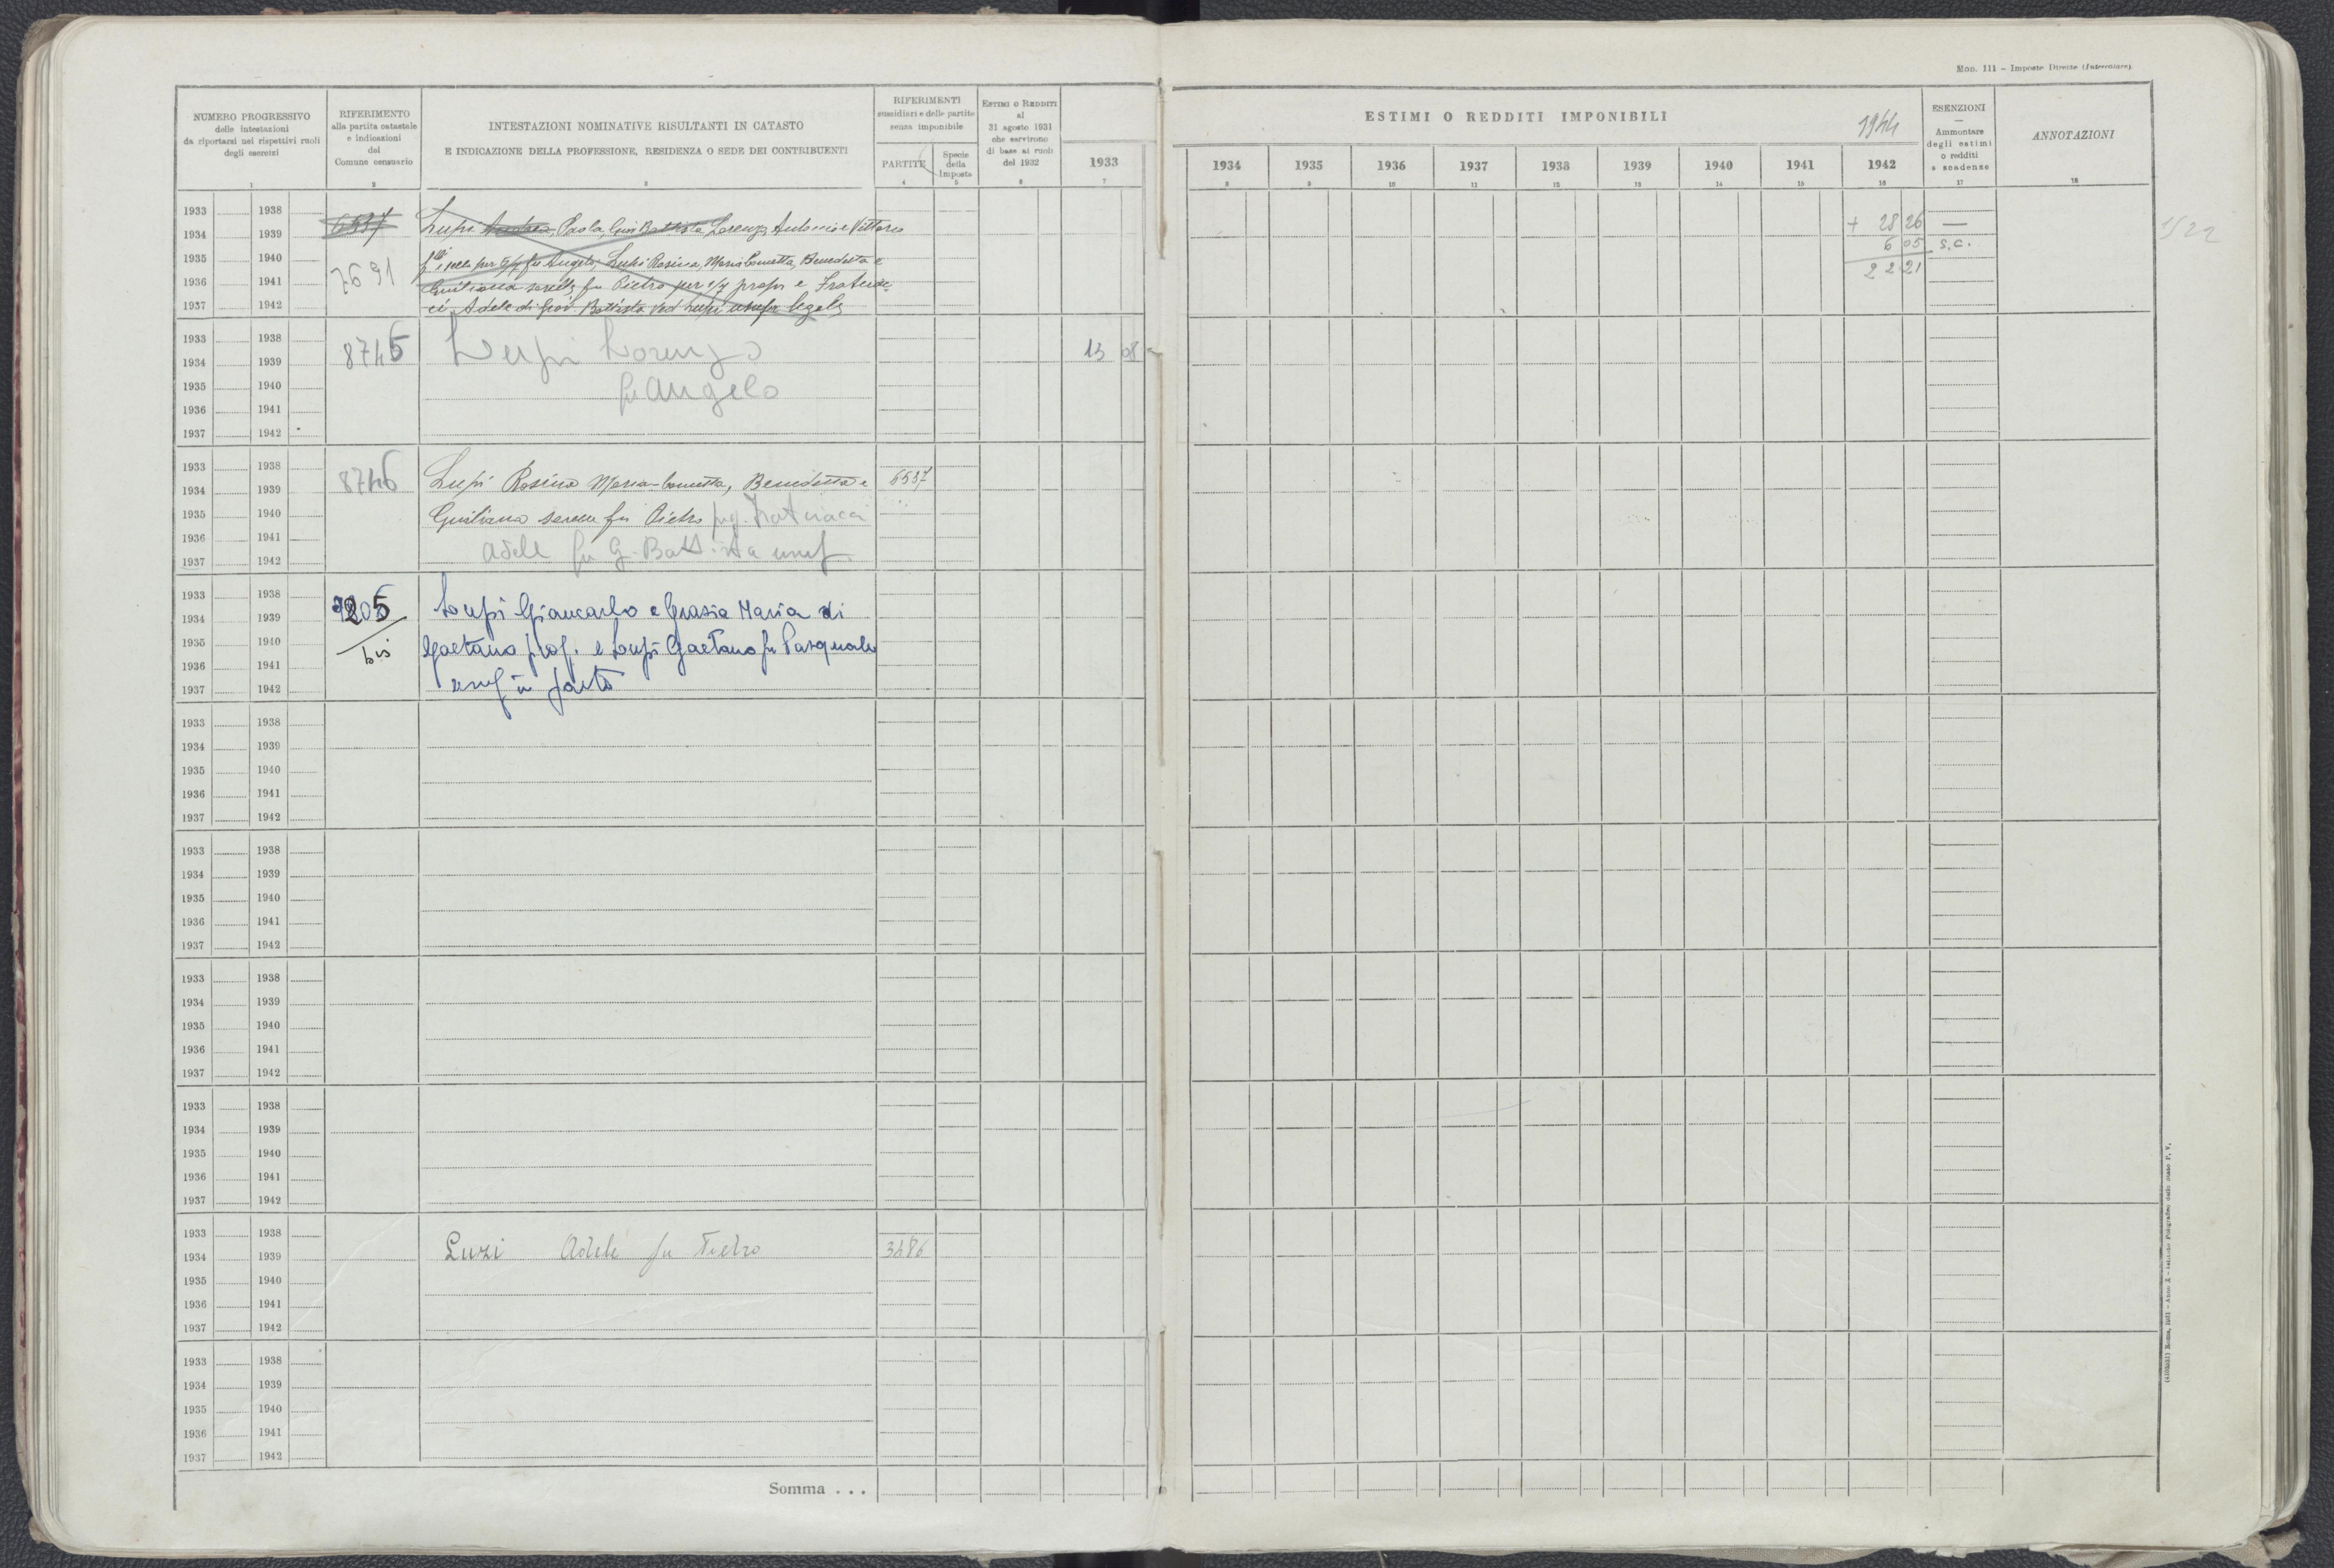 Mod. 111 – Imposte Dirette (Intercalare).
NUMERO PROGRESSIVO
delle intestazioni
da riportarsi nei rispettivi ruoli
degli esercizi
1
RIFERIMENTO
alla partita catastale
e indicazioni
del
Comune censuario
2
INTESTAZIONI NOMINATIVE RISULTANTI IN CATASTO
E INDICAZIONE DELLA PROFESSIONE, RESIDENZA O SEDE DEI CONTRIBUENTI
3
RIFERIMENTI
sussidiari e delle partite
senza imponibile
PARTITE
4
Specie
della
Imposta
5
ESTIMI O REDDITI
al
31 agosto 1931
che servirono
di base ai ruoli
del 1932
6
1933
7
ESTIMI O REDDITI IMPONIBILI
1944
1934 1935 1936 1937 1938 1939 1940 1941 1942
8 9 10 11 12 13 14 15 16
ESENZIONI
—
Ammontare
degli estimi
o redditi
e scadenze
17
ANNOTAZIONI
18
1933 1938
1934 1939 6537 Lupi Paola, Giov Battista Lorenzo, Antonio e Vittorio + 28 26 —
6 05 s.c.
1935 1940 fu Angelo, Lupi Rosina, Maria Concetta, Benedetta e
1936 1941 7691 Giuliana sorelle fu Pietro per propr e 22 21
1937 1942 Adele di Giov. Battista ved Lupi usufr legale
1933 1938
1934 1939 8745 Lupi Lorenzo 13 08
1935 1940 fu Angelo
1936 1941
1937 1942
1933 1938
1934 1939 8746 Lupi Rosina Maria-Concetta, Benedetta e 6537
1935 1940 Giuliana sorelle fu Pietro
1936 1941
1937 1942 Adele fu G. Battista usuf
1933 1938
1934 1939 Lupi Giancarlo e Grazia Maria di
1935 1940 bis Gaetano prop. e Lupi Gaetano fu Pasquale
1936 1941
1937 1942 usuf in parte
1933 1938
1934 1939
1935 1940
1936 1941
1937 1942
1933 1938
1934 1939
1935 1940
1936 1941
1937 1942
1933 1938
1934 1939
1935 1940
1936 1941
1937 1942
1933 1938
1934 1939
1935 1940
1936 1941
1937 1942
1933 1938
1934 1939 Luzi Adele fu Pietro 3686
1935 1940
1936 1941
1937 1942
1933 1938
1934 1939
1935 1940
1936 1941
1937 1942
Somma . . .